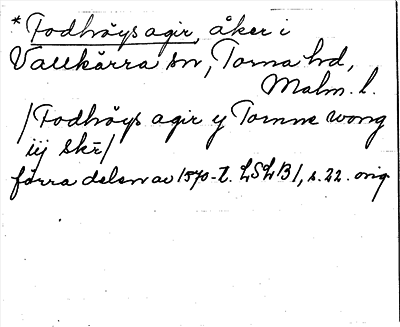 * Fodhöys agir, åker i
Vallkärra sn, Torna hd,
Malm. l.
/Fodhöys agir y Tomme wong
iij skr/
förra delen av 1570-t. LSLB1, s. 22. orig